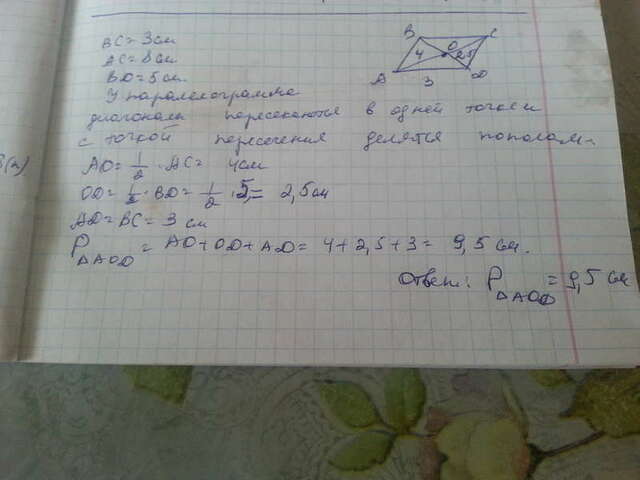 BC = 3 см
AC = 8 см
BD = 5 см.
У паралелограмма
диагонали пересекаются в одной точке и
с точкой пересечения делятся пополам.
AO = 1/2 · AC = 4 см
OD = 1/2 · BD = 1/2 · 5 = 2,5 см
AD = BC = 3 см
P ΔAOD = AO + OD + AD = 4 + 2,5 + 3 = 9,5 см.
Ответ: P ΔAOD = 9,5 см
B C
O
4 2,5
A 3 D